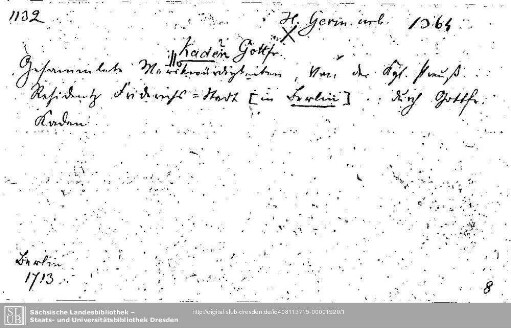 1132
H. Germ. urb. 1364
Kaden Gottfr.
Gesammlete Merckwürdigkeiten, von der Kgl. Preuß
Residentz Friderichs=Stadt [in Berlin] .. durch Gottfr.
Kaden
Berlin
1713
8
SLUB
Sächsische Landesbibliothek –
Staats- und Universitätsbibliothek Dresden